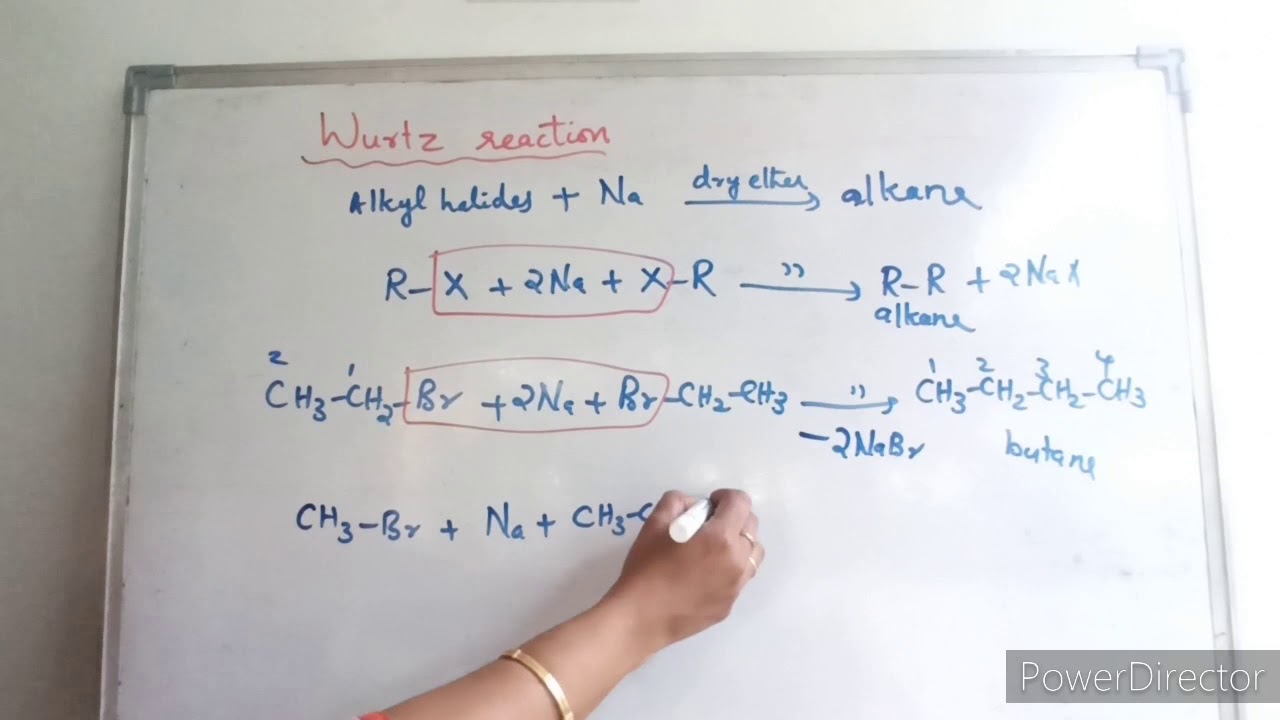 Wurtz reaction
Alkyl halides + Na dry ether → alkane
R-X + 2Na + X-R '' → R-R + 2NaX
alkane
²CH₃-¹CH₂-Br + 2Na + Br-CH₂-CH₃ '' → ¹CH₃-²CH₂-³CH₂-⁴CH₃
-2NaBr butane
CH₃-Br + Na + CH₃-C
PowerDirector